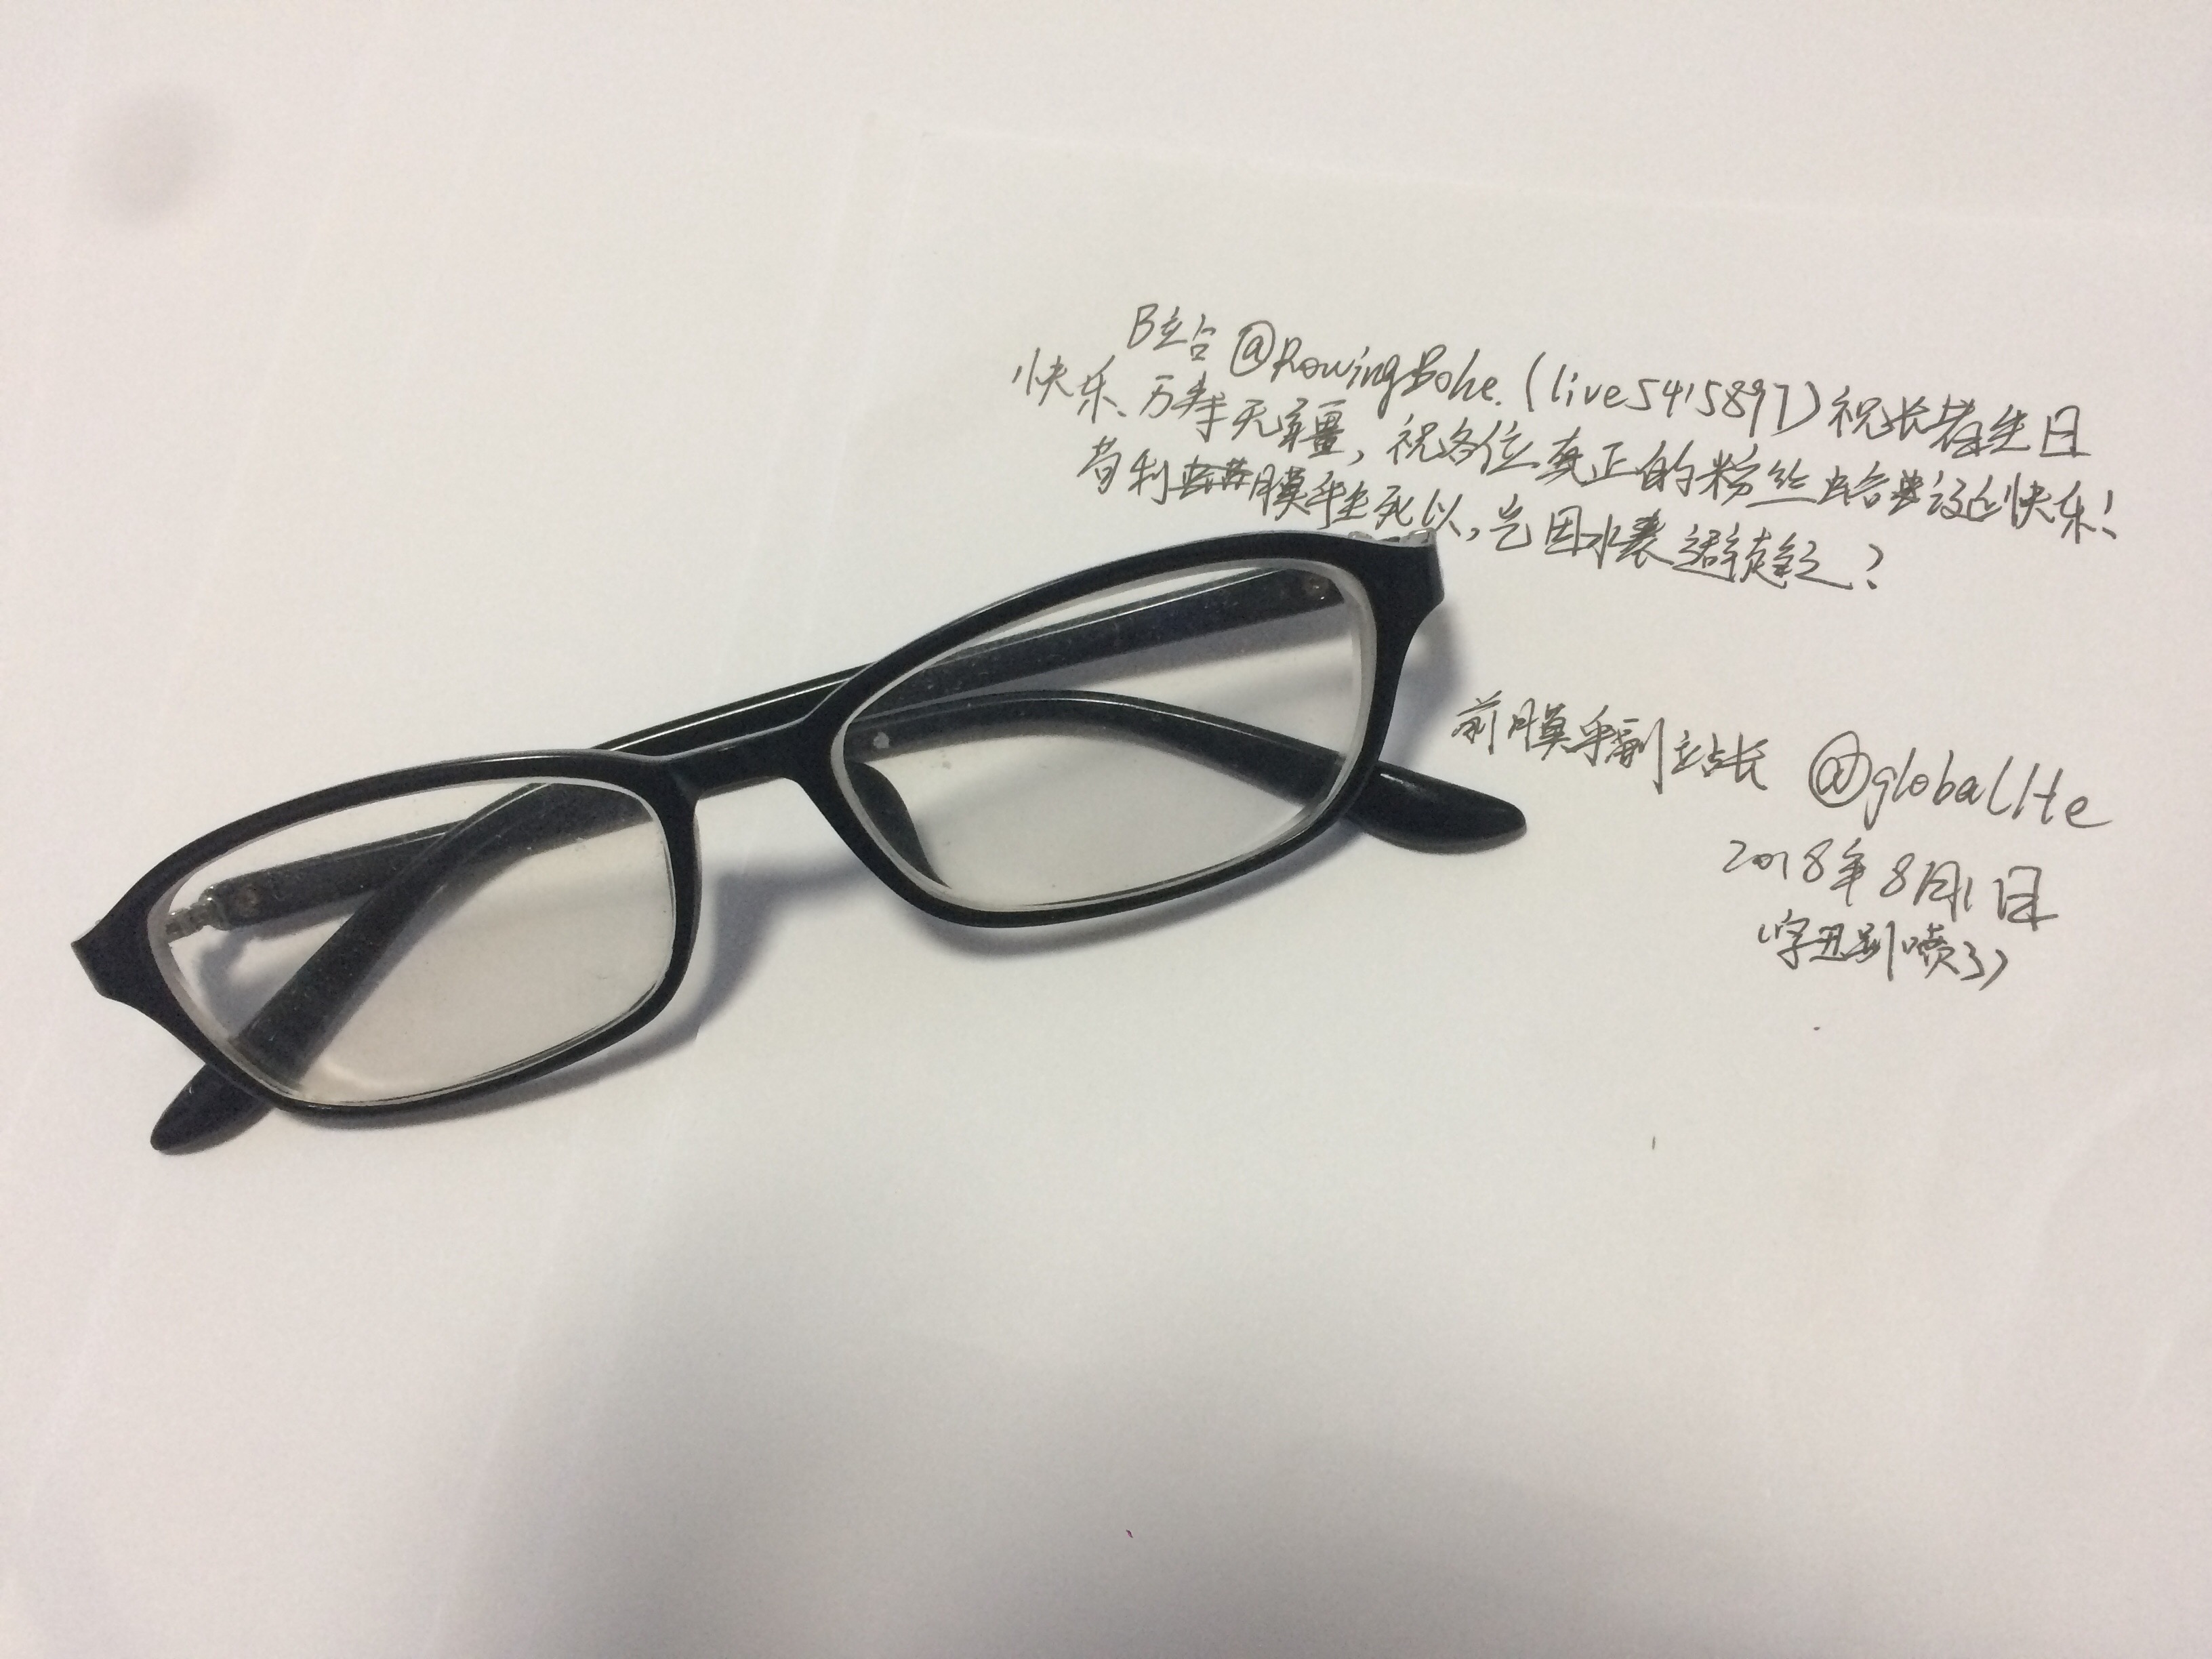 B站@RowingBohe.(live5415897)祝长者生日
快乐、万寿无疆，祝各位真正的粉丝蛤诞快乐！
苟利膜乎生死以，岂因水表避趋之？
前膜乎副站长 @globalHe
2018年8月1日
(字丑别喷了)